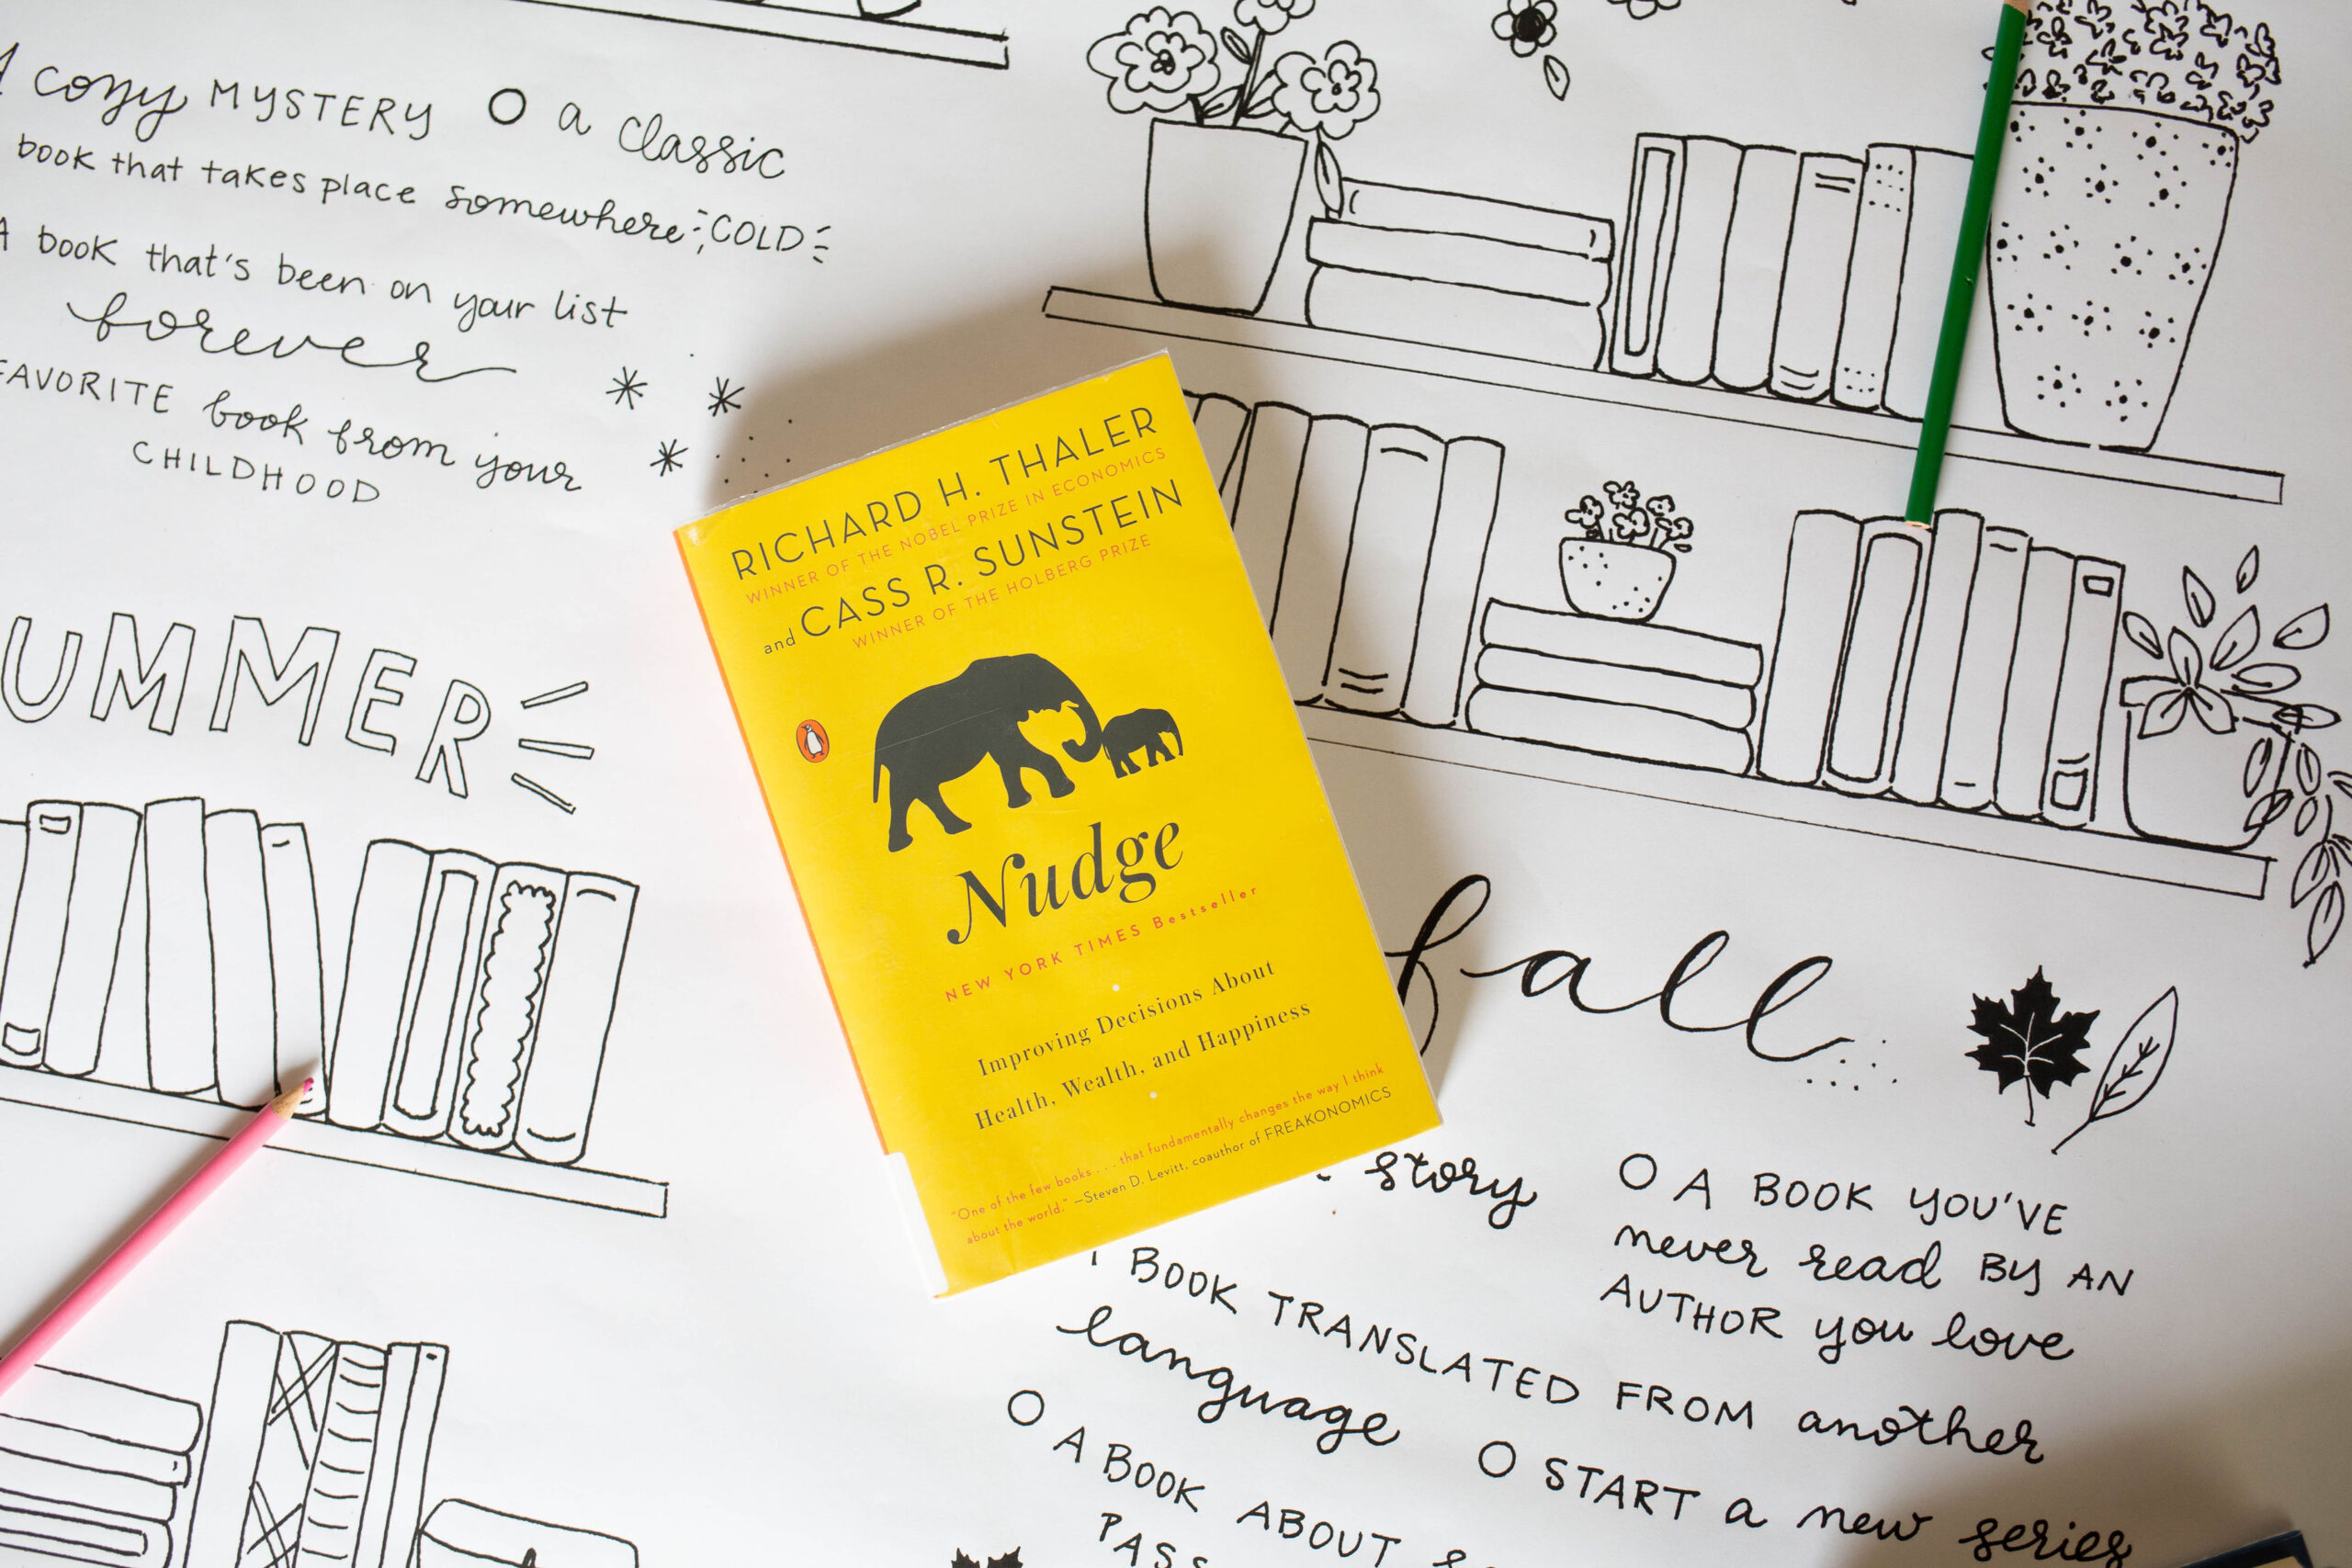 cozy MYSTERY O a classic
book that takes place somewhere COLD
A book that's been on your list
forever
FAVORITE book from your
CHILDHOOD
UMMER
RICHARD H. THALER
WINNER OF THE NOBEL PRIZE IN ECONOMICS
and CASS R. SUNSTEIN
WINNER OF THE HOLBERG PRIZE
Nudge
NEW YORK TIMES Bestseller
Improving Decisions About
Health, Wealth, and Happiness
"One of the few books . . . that fundamentally changes the way I think
about the world." —Steven D. Levitt, coauthor of FREAKONOMICS
fall
story
O A BOOK YOU'VE
never read BY AN
AUTHOR you love
BOOK TRANSLATED FROM another
language
O START a new series
O A BOOK ABOUT
PASS